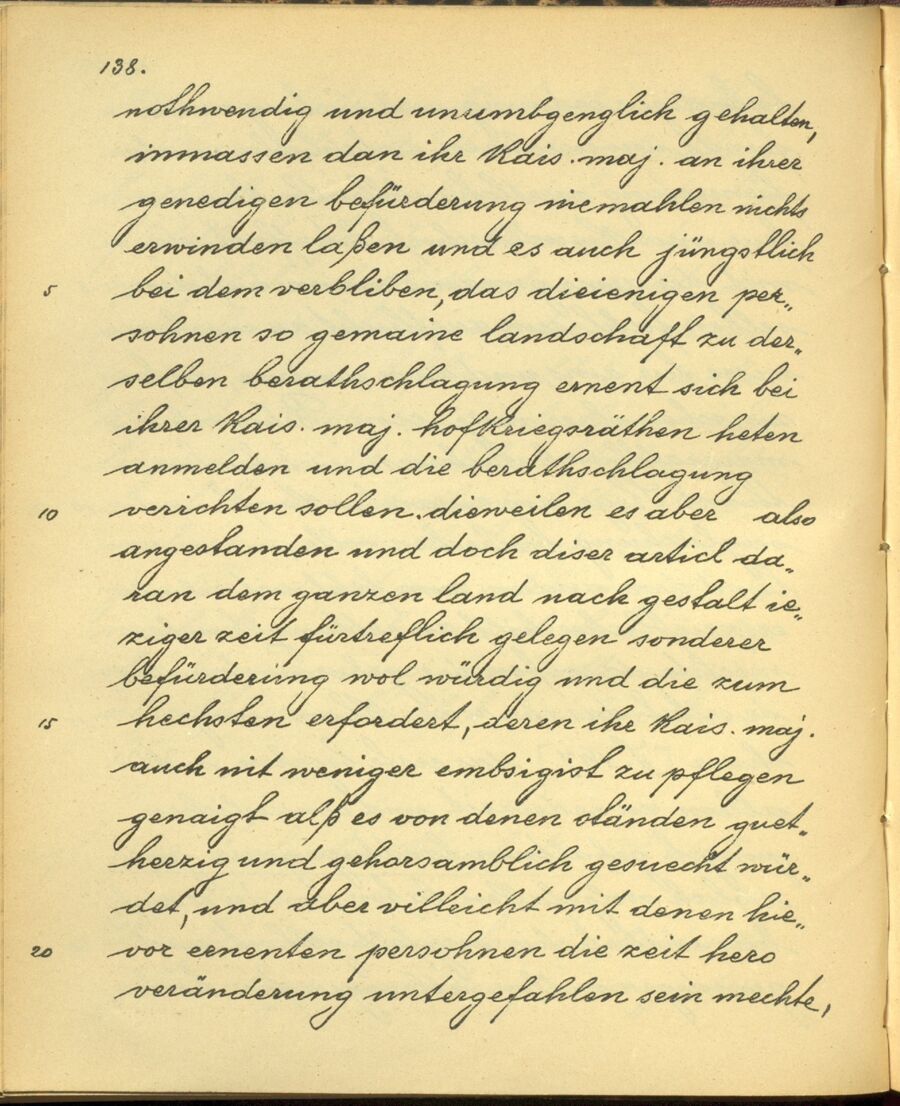 138.
nothwendig und unumbgenglich gehalten,
immassen dan ihr Kais. maj. an ihrer
genedigen befürderung niemahlen nichts
erwinden laßen und es auch jüngstlich
5 bei dem verbliben, das dieienigen per„
sohnen so gemaine landschaft zu der„
selben berathschlagung ernent sich bei
ihrer Kais. maj. hofkriegsräthen heten
anmelden und die berathschlagung
10 verrichten sollen. dieweilen es aber also
angestanden und doch diser articl da„
ran dem ganzen land nach gestalt ie„
ziger zeit fürtreflich gelegen sonderer
befürderung wol würdig und die zum
15 hechsten erfordert, deren ihr Kais. maj.
auch nit weniger embsigist zu pflegen
genaigt alß es von denen ständen guet„
herzig und gehorsamblich gesuecht wür„
det, und aber villeicht mit denen hie„
20 vor ernenten persohnen die zeit hero
veränderung untergefahlen sein mechte,